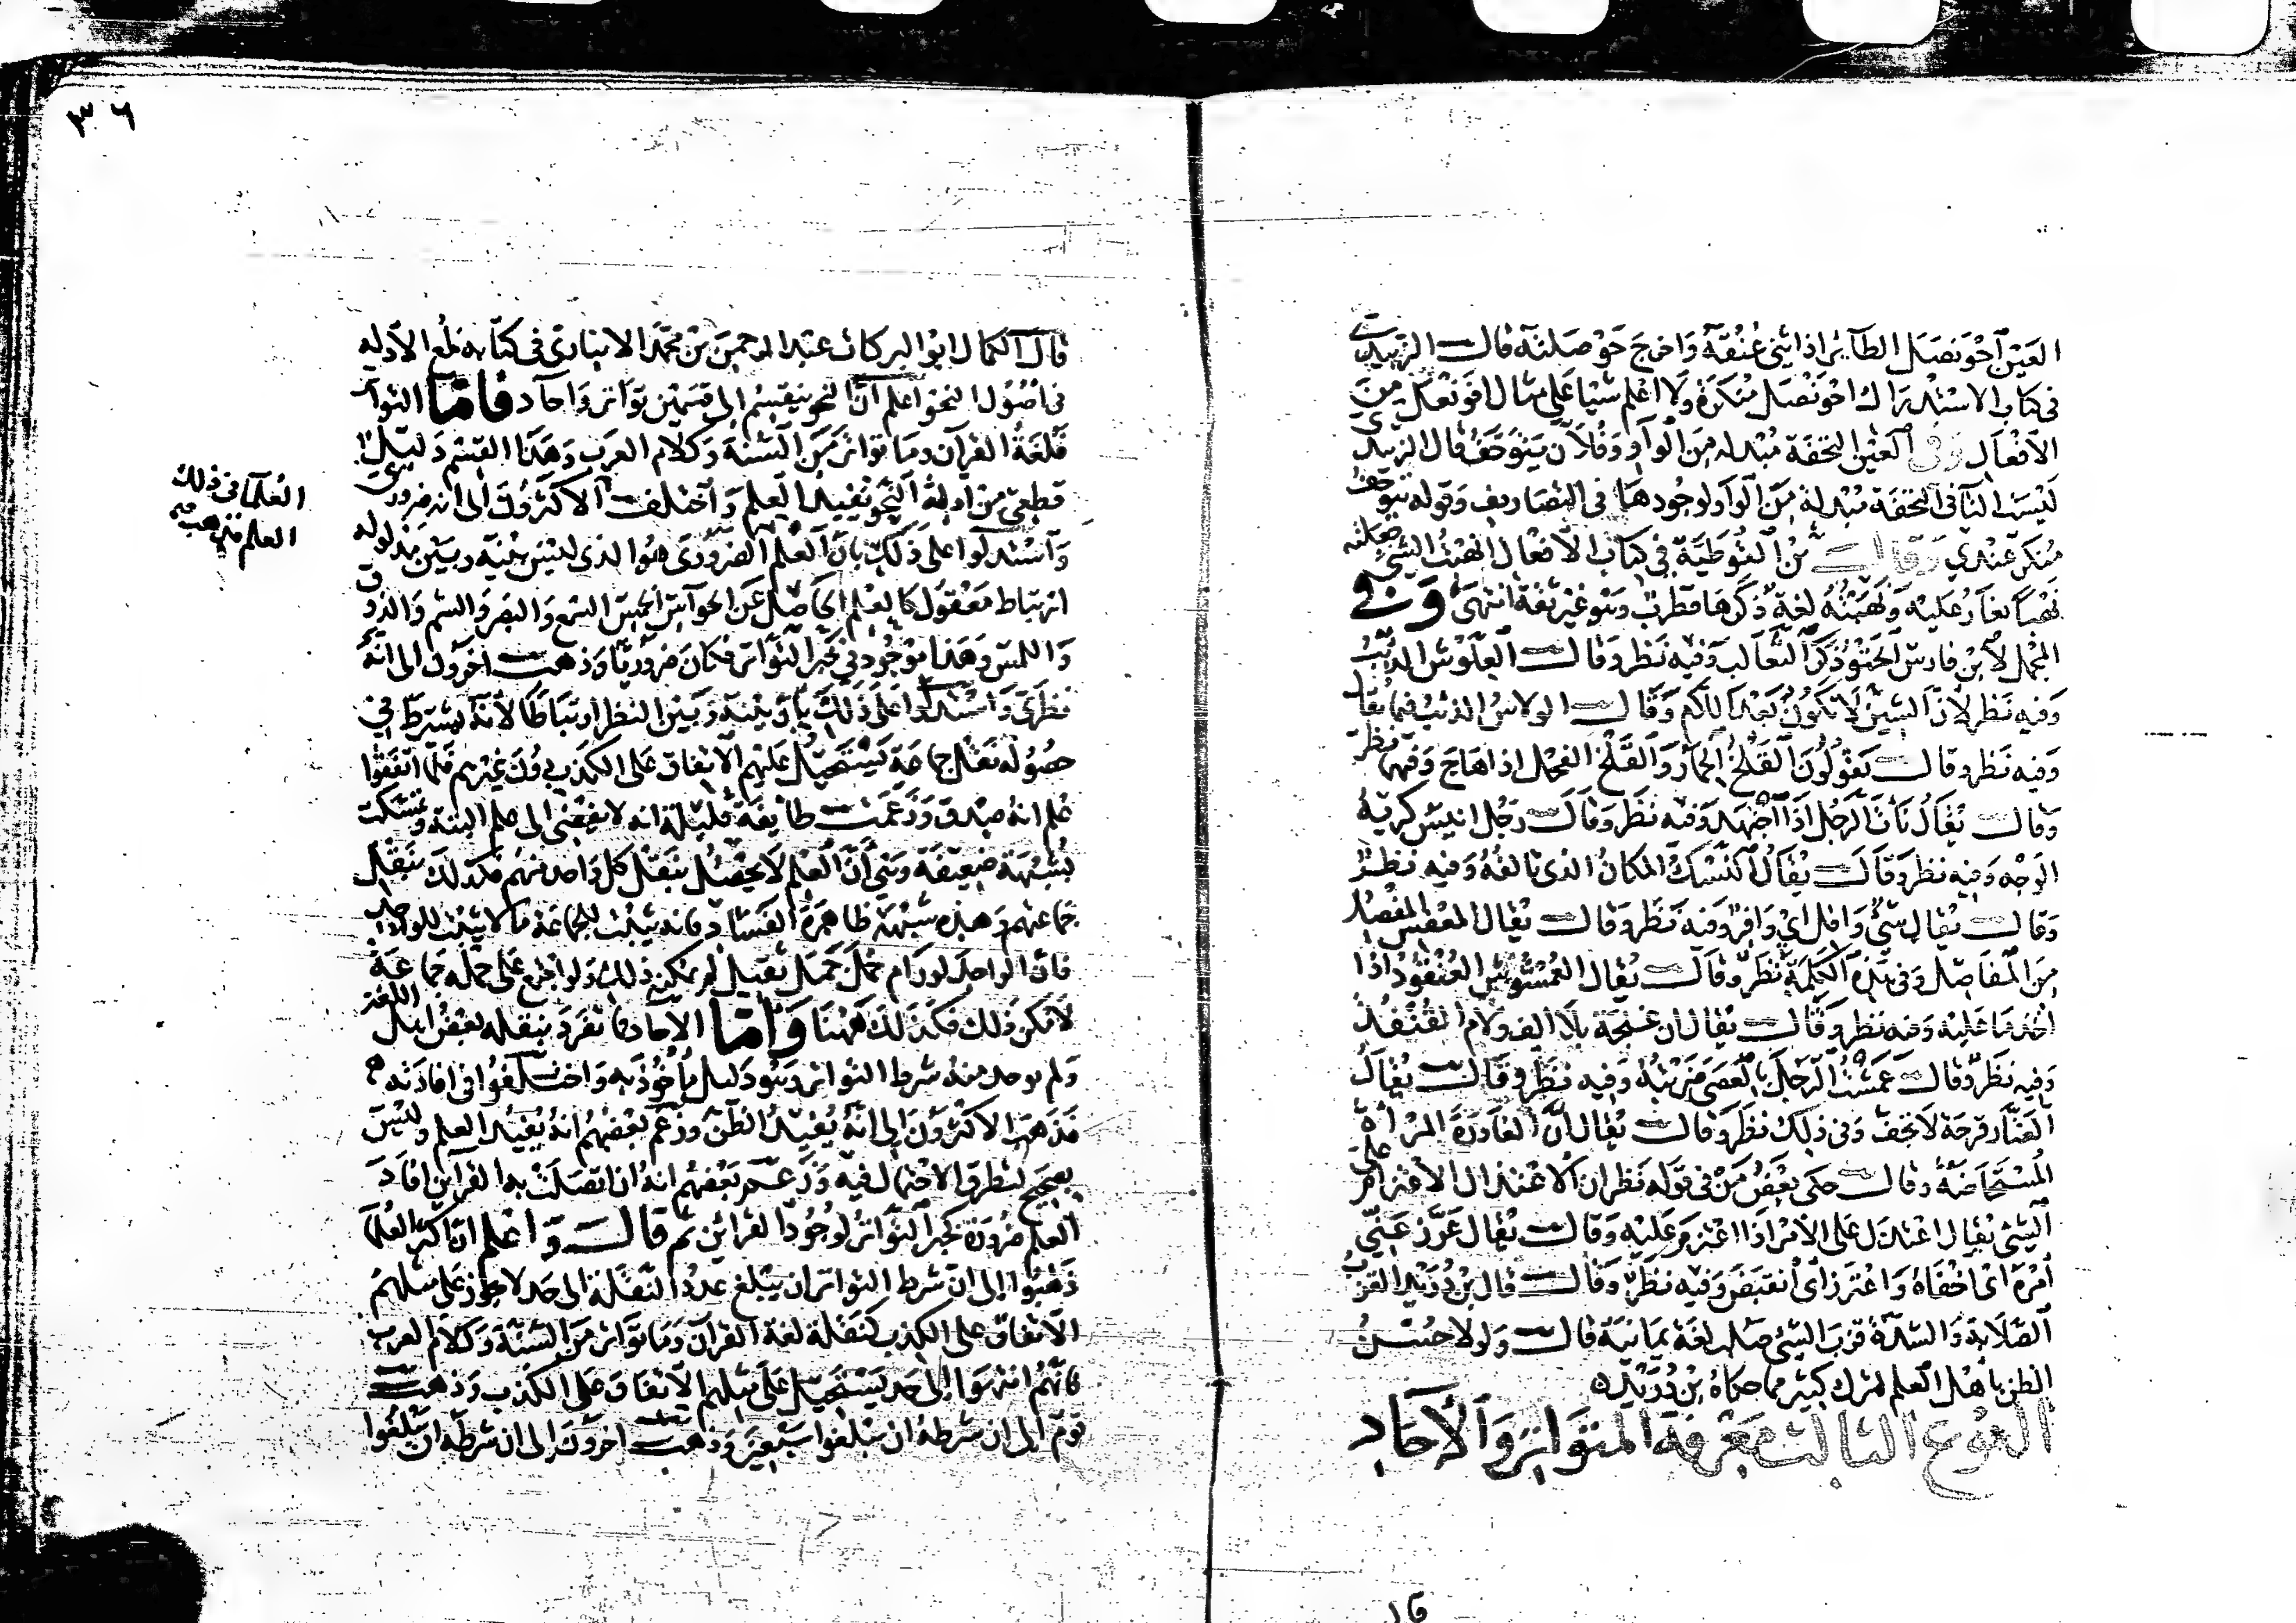 العين احونصل الطائر اذا ثنى عنقه واخرج حوصلته قال الزبيدي
في كتاب الاستدراك احونصل منكرة ولا اعلم شيا على مثال افونعل من
الافعال وفي العين التحفة مبدلة من الواو وفلان يتوحف قال الزبيدي
ليست التا في التحفة مبدلة من الواو لوجودها في التصاريف وقوله يتوحف
منكر عندي وقال بن القوطية في كتاب الافعال انهبت الشي جعلته
نهبا يغار عليه ونهبته لغة ذكرها قطرب وهو غير ثقة انتهى وفي
المجمل لابن فارس الحتو ذكر الثعالب وفيه نظر وقال العلوش الذيب
وفيه نظر لان الشين لا تكون بعد اللام وقال الولاس الذئب فيما يقال
وفيه نظر وقال يقولون القلخ الحمار والقلخ الفحل اذا هاج وفيهما نظر
وقال يقال نأت الرجل اذا اجتهد وفيه نظر وقال رجل انيس كريه
الوجه وفيه نظر وقال يقال النسك المكان الذي تالفه وفيه نظر
وقال يقال شي وافل اي وافر وفيه نظر وقال يقال المعفس المفصل
من المفاصل وفي هذه الكلمة نظر وقال يقال العمشوش العنقود اذا
اخذ ما عليه وفيه نظر وقال يقال ان عنجة بلا الف ولام القنفذ
وفيه نظر وقال عمشت الرجل بالعصى ضربته وفيه نظر وقال يقال
العنار قرحة لا تجف وفي ذلك نظر وقال يقال ان الغادة المراة
المستحاضة وقال حكى بعض من في قوله نظر ان الاعتذال الاعتزام على
الشي يقال اعتذل على الامر اذا اعتزم عليه وقال يقال عرز عني
امره اي اخفاه واعترز اي انقبض وفيه نظر وقال قال بن دريد القزب
الصلابة والشدة قزب الشي صلب لغة يمانية قال ولولا حسن
الظن باهل العلم لترك كثير مما حكاه بن دريد
النوع الثالث معرفة المتواتر والاحاد
قال الكمال ابو البركات عبد الرحمن بن محمد الانباري في كتابه لمع الادله
في اصول النحو اعلم ان النحو ينقسم الى قسمين تواتر واحاد فاما التواتر
فلغة القران وما تواتر من السنة وكلام العرب وهذا القسم دليل
قطعي من ادلة النحو يفيد العلم واختلف
العلما في ذلك
العلم فذهب
الاكثرون الى انه ضروري
واستدلوا على ذلك بان العلم الضروري هو الذي ليس بينه وبين مدلوله
ارتباط معقول كالعلم الحاصل عن الحواس الخمس السمع والبصر والشم والذوق
واللمس وهذا موجود في خبر التواتر فكان ضروريا وذهب اخرون الى انه
نظري واستدلوا على ذلك بان بينه وبين النظر ارتباطا لانه يشترط في
حصوله نقل جماعة يستحيل عليهم الاتفاق على الكذب دون غيرهم فلما اتفقوا
علم انه صدق وزعمت طايفة قليلة انه لا يفضي الى علم البتة وتمسكت
بشبهة ضعيفة وهي ان العلم لا يحصل بنقل كل واحد منهم فكذلك بنقل
جماعتهم وهذه شبهة ظاهرة الفساد فانه يثبت للجماعة ما لا يثبت للواحد
فان الواحد لو رام حمل حمل ثقيل لم يمكن ذلك ولو اجتمع على حمله جماعة
لامكن ذلك فكذلك ههنا واما الاحاد فما تفرد بنقله بعض اهل اللغة
ولم يوجد منه شرط التواتر وهو دليل ماخوذ به واختلفوا في افادته
فذهب الاكثرون الى انه يفيد الظن وزعم بعضهم انه يفيد العلم وليس
بصحيح لتطرق الاحتمال فيه وزعم بعضهم انه ان اتصلت به القراين افاد
العلم ضرورة كخبر التواتر لوجود القرائن ثم قال واعلم ان اكثر العلما
ذهبوا الى ان شرط التواتر ان يبلغ عدد النقلة الى حد لا يجوز على مثلهم
الاتفاق على الكذب كنقلة لغة القران وما تواتر من السنة وكلام العرب
فانهم انتهوا الى حد يستحيل على مثلهم الاتفاق على الكذب وذهب
قوم الى ان شرطه ان يبلغوا سبعين وذهب اخرون الى ان شرطه ان يبلغوا